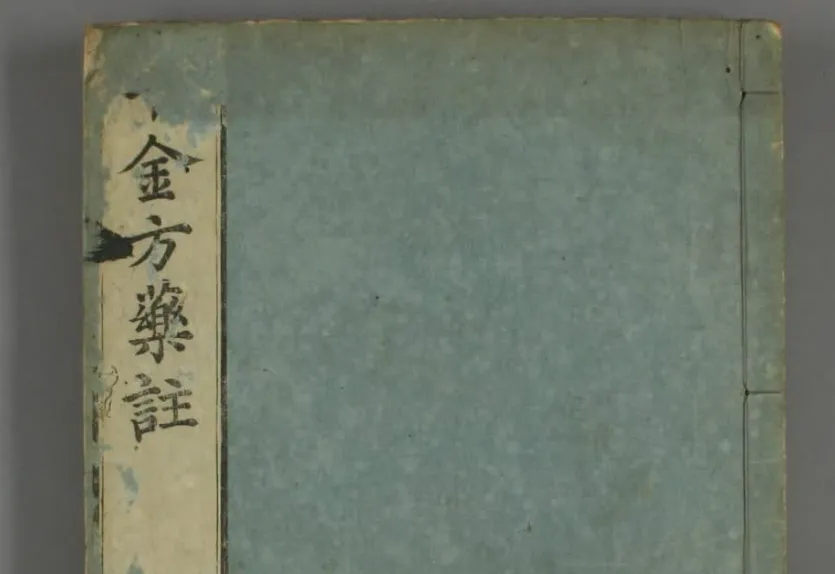 金方藥註